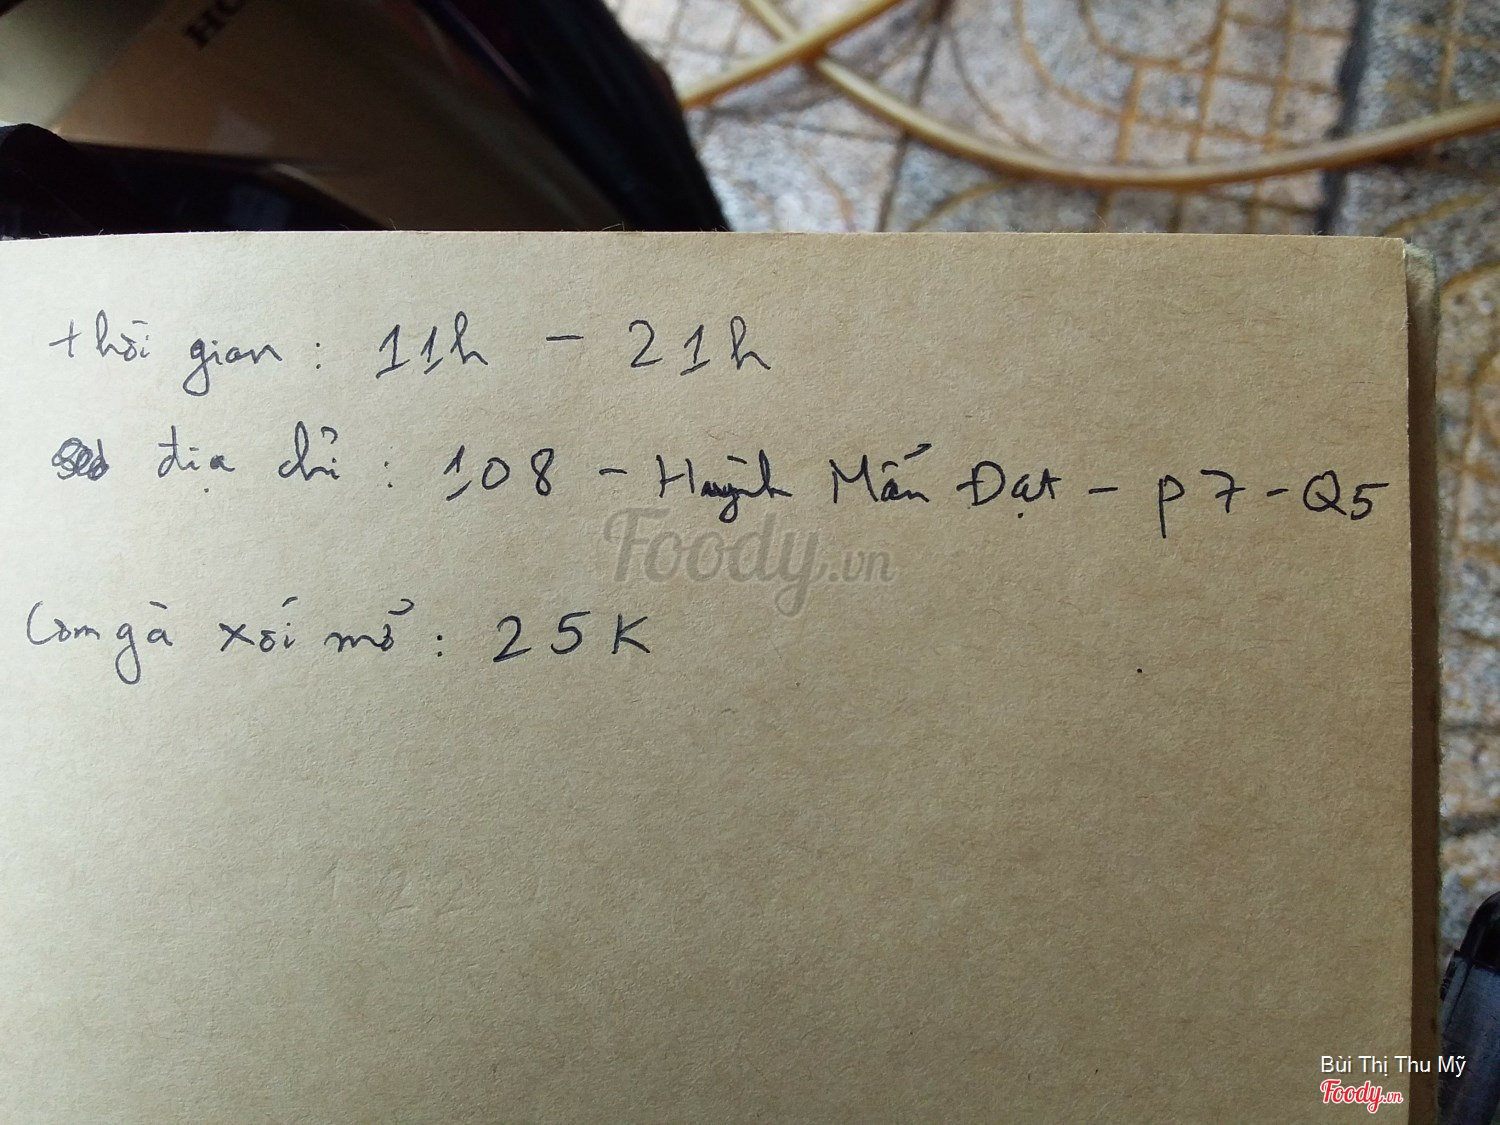 HO
thời gian : 11h - 21h
địa chỉ : 108 - Huỳnh Mẫn Đạt - p7 - Q5
Cơm gà xối mở : 25K
Foody.vn
Bùi Thị Thu Mỹ
Foody.vn